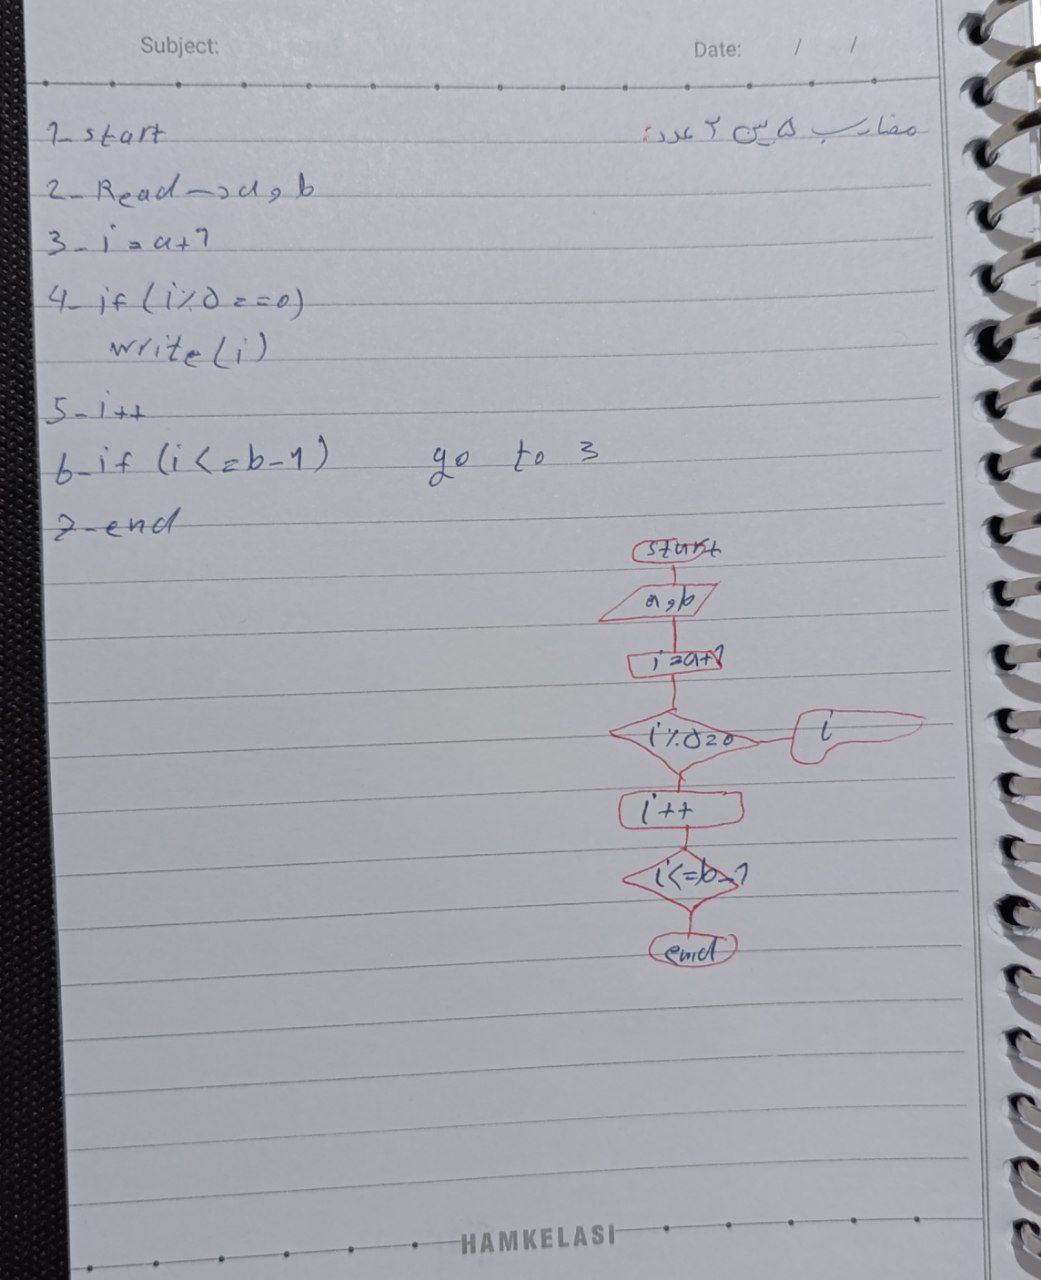 Subject:
Date: / /
مضارب ۵ بین ۲ عدد:
1- start
2- Read → a, b
3- i = a+1
4- if (i%5 == 0)
write (i)
5- i++
6- if (i <= b-1) go to 3
7- end
start
a, b
i = a+1
i%5=0
i
i++
i<=b-1
end
HAMKELASI